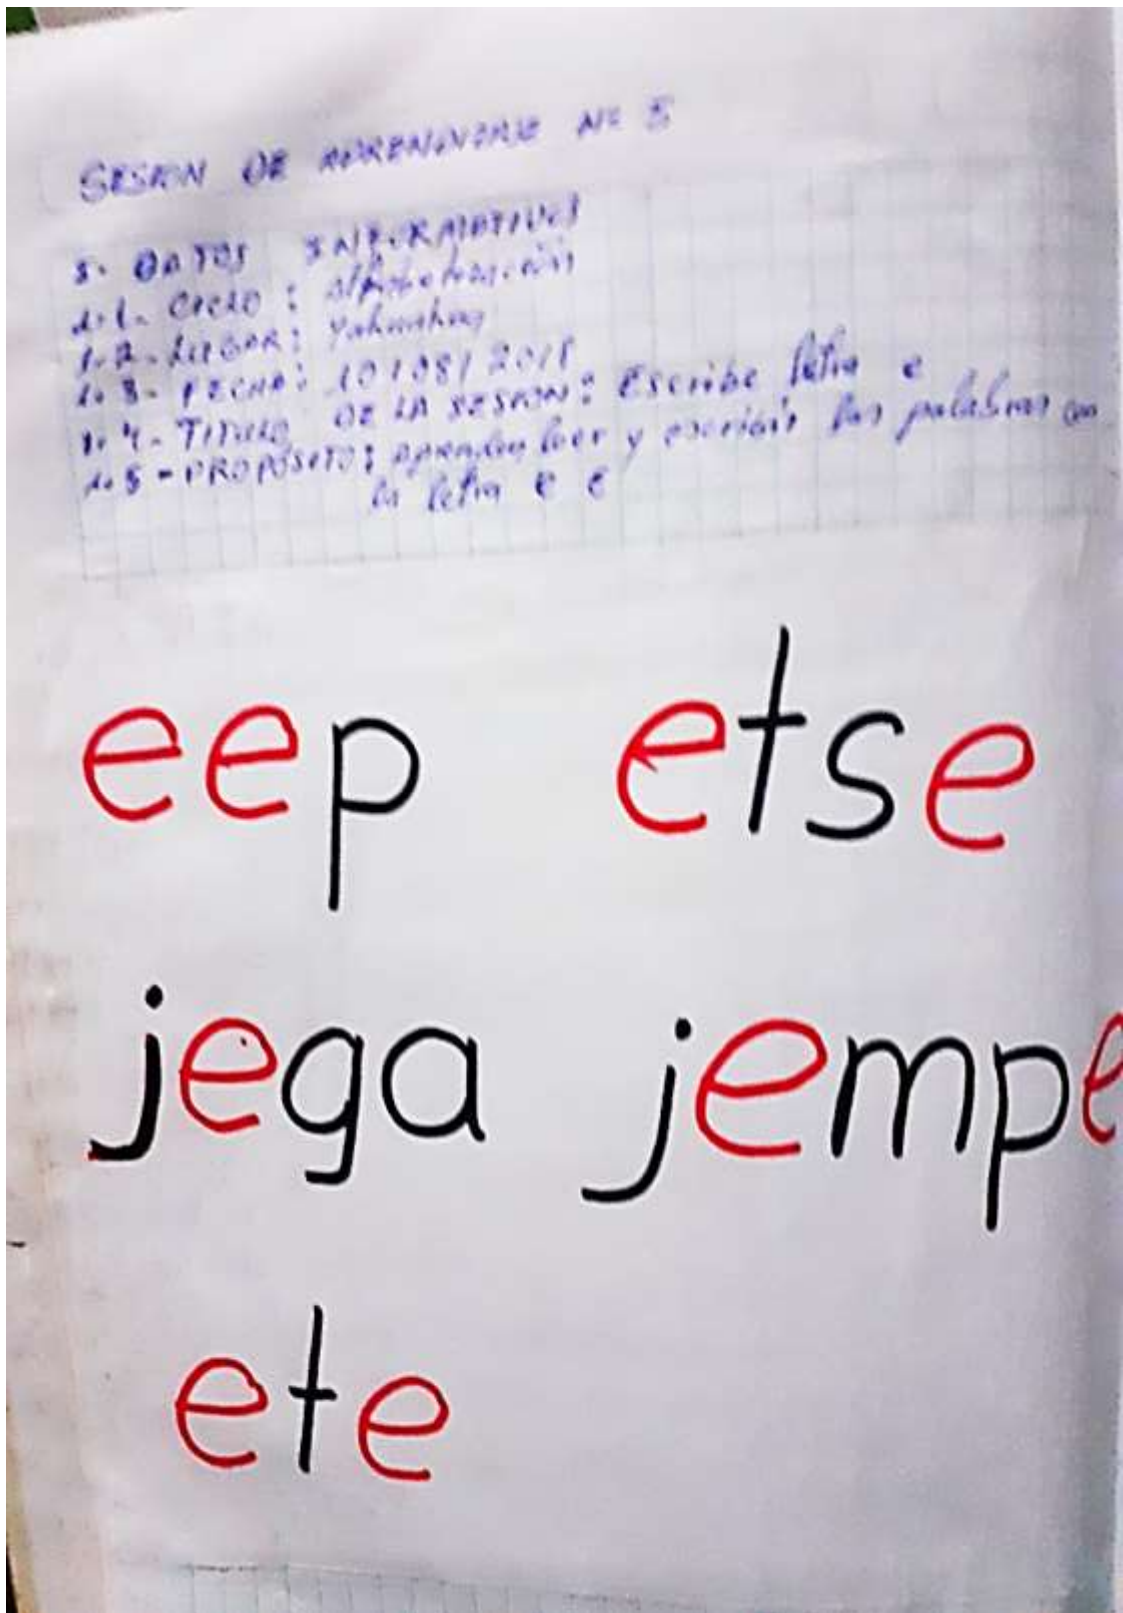 SESION DE APRENDIZAJE Nº 5
1. DATOS INFORMATIVOS
1.1. CICLO : alfabetización
1.2. LUGAR :
1.3. FECHA : 10/08/2018
1.4. TITULO DE LA SESION : Escribe letra e
1.5 - PROPÓSITO : aprenden leer y escribir las palabras con
la letra e e
eep etse
jega jempe
ete